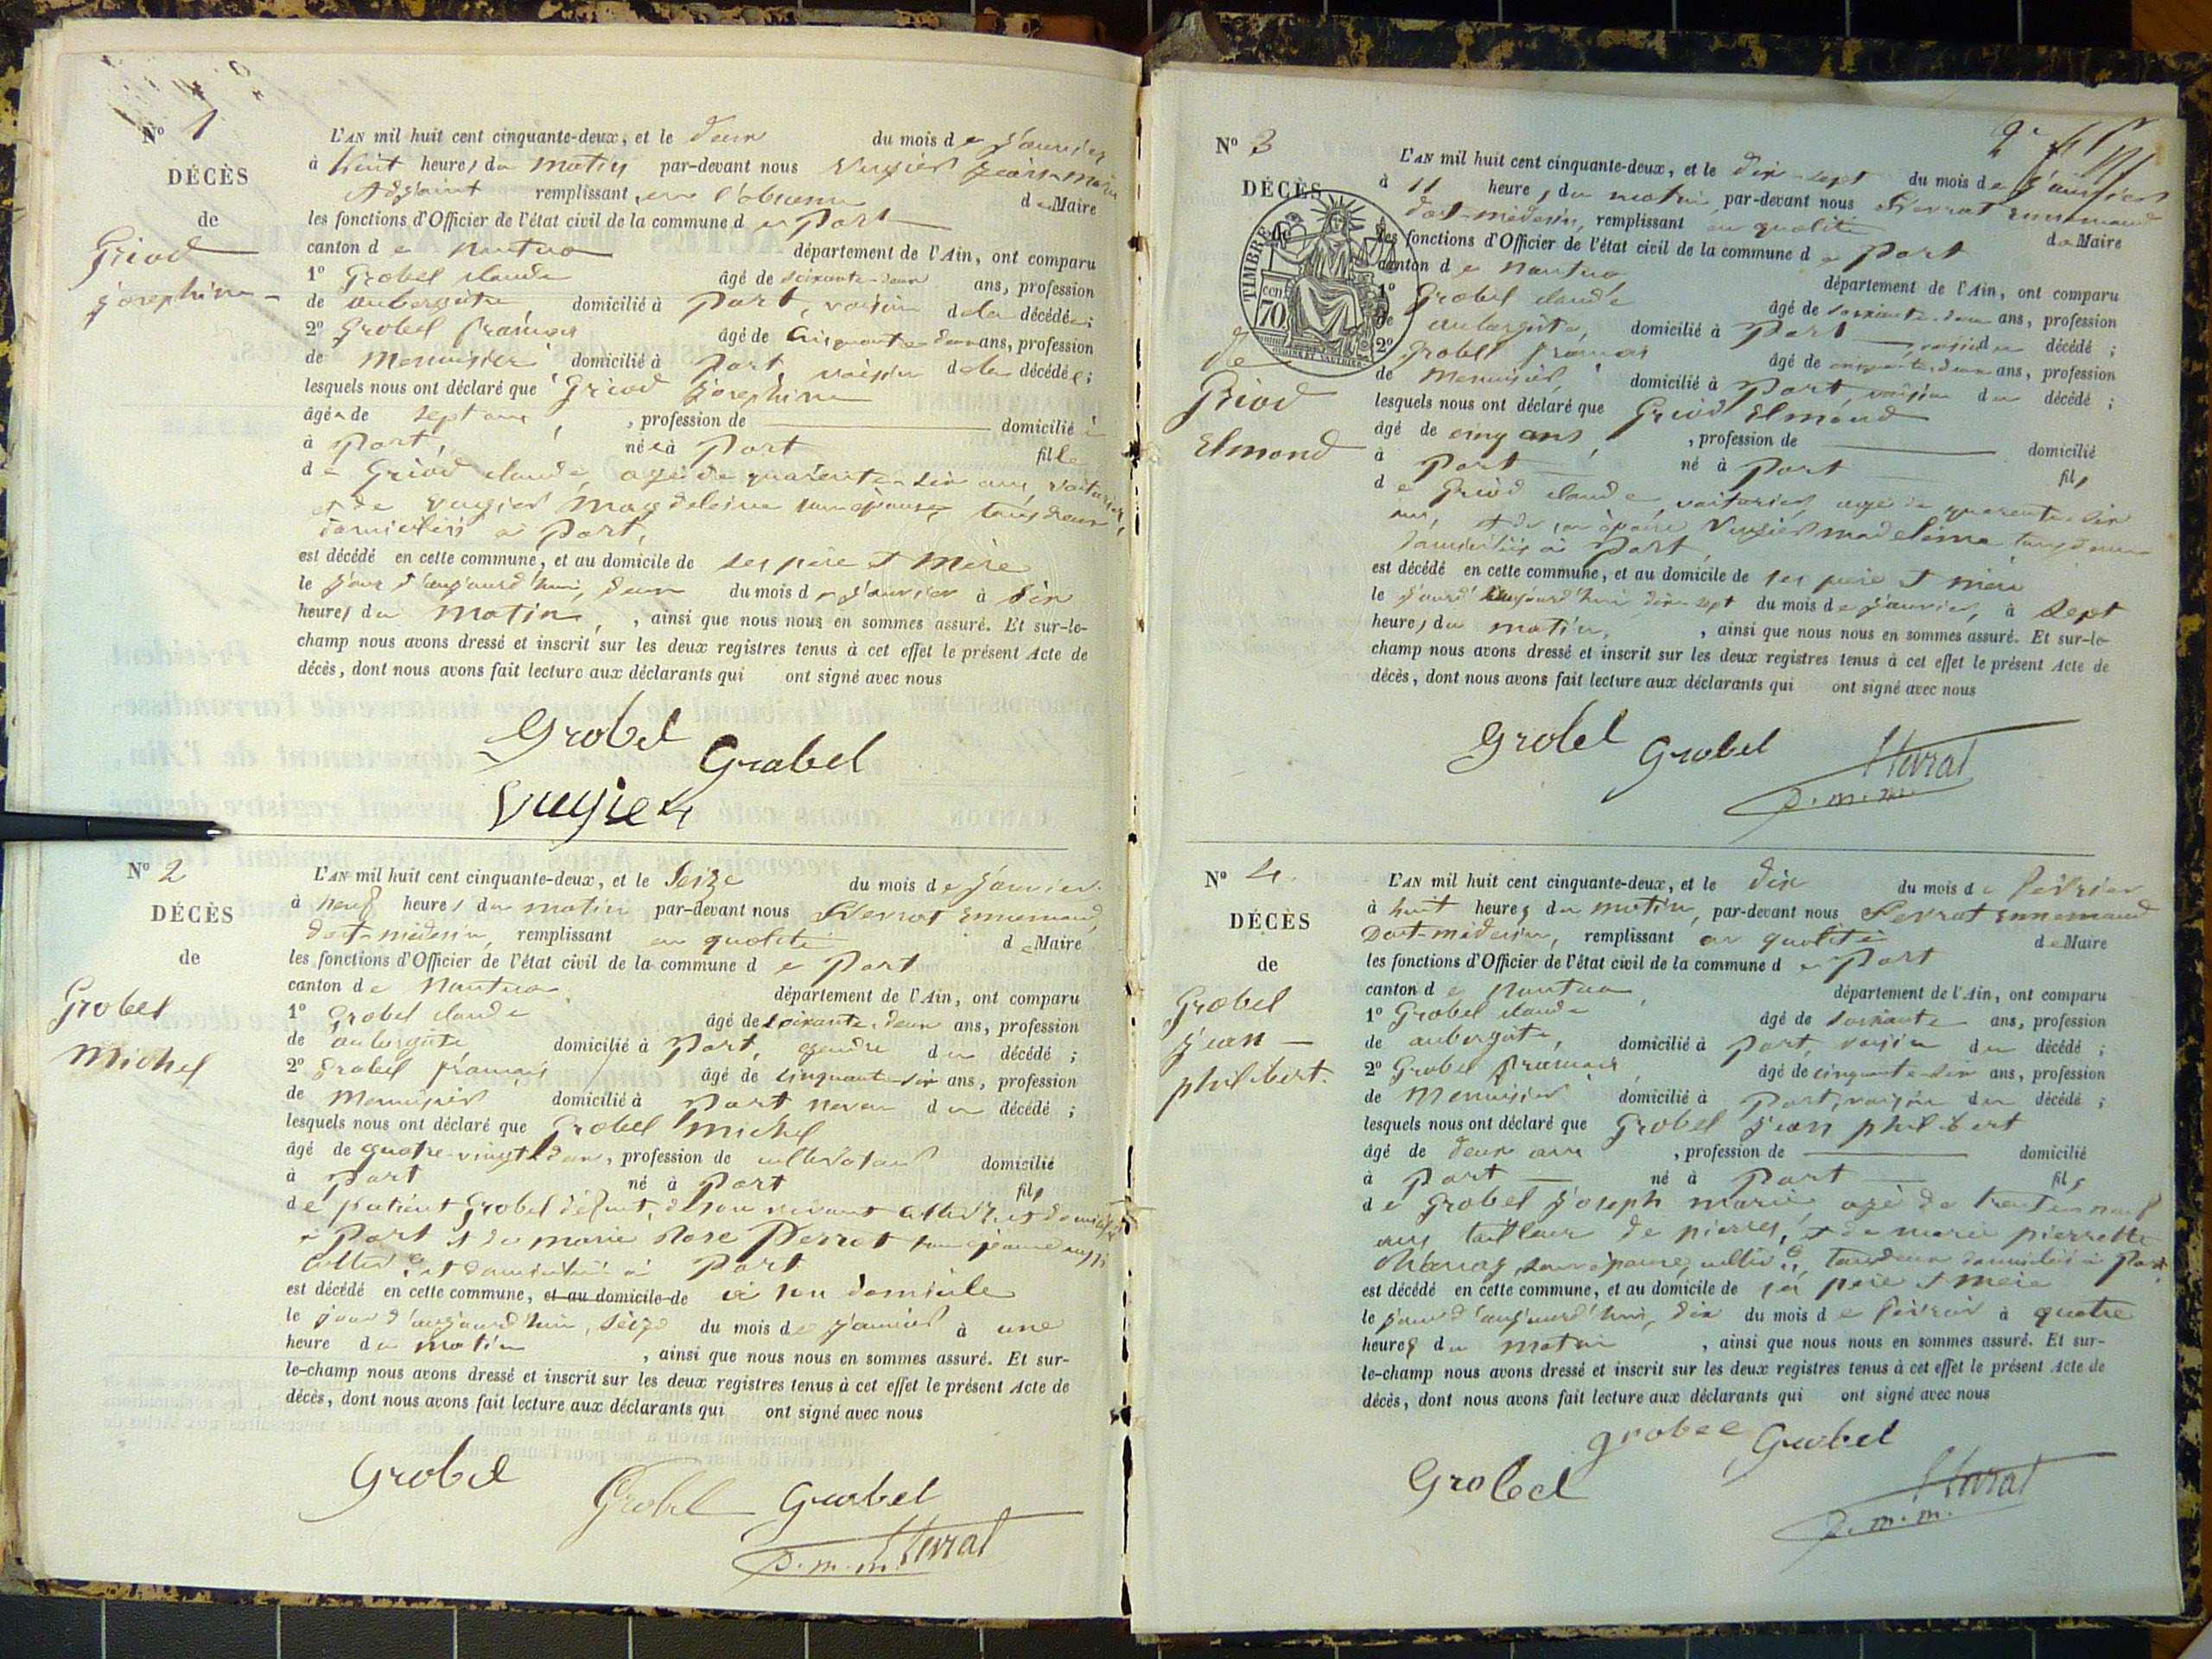 N° 1
DÉCÈS
de
Griod
Josephine
L'AN mil huit cent cinquante-deux, et le deux du mois de Janvier
à huit heures du matin par-devant nous Vuyier Jean-Marie
Adjoint remplissant en l'absence du Maire
les fonctions d'Officier de l'état civil de la commune de Port
canton de Nantua département de l'Ain, ont comparu
1° Grobel Claude âgé de soixante-deux ans, profession
de aubergiste domicilié à Port, voisin de la décédée;
2° Grobel François âgé de cinquante-deux ans, profession
de Menuisier, domicilié à Port, voisin de la décédée;
lesquels nous ont déclaré que Griod Josephine
âgée de sept ans, profession de domicilié à
à Port, née à Port fille
de Griod Claude, agé de quarente-six ans, voiturier,
et de Vuyier Magdeleine son épouse, tous deux
domiciliés à Port,
est décédé en cette commune, et au domicile de ses père et Mère
le jour d'aujourd'hui, deux du mois de Janvier à six
heures du matin, ainsi que nous nous en sommes assuré. Et sur-le-
champ nous avons dressé et inscrit sur les deux registres tenus à cet effet le présent Acte de
décès, dont nous avons fait lecture aux déclarants qui ont signé avec nous
Grobel Grobel
Vuyier
N° 2
DÉCÈS
de
Grobel
Michel
L'AN mil huit cent cinquante-deux, et le Seize du mois de Janvier
à neuf heures du matin par-devant nous Ennemand,
doct-médecin, remplissant en qualité de Maire
les fonctions d'Officier de l'état civil de la commune de Port
canton de Nantua département de l'Ain, ont comparu
1° Grobel Claude âgé de soixante-deux ans, profession
de aubergiste domicilié à Port, gendre du décédé;
2° Grobel François âgé de cinquante-six ans, profession
de Menuisier domicilié à Port neveu du décédé;
lesquels nous ont déclaré que Grobel Michel
âgé de quatre-vingt-deux, profession de cultivateur domicilié
à Port né à Port fils
de patient Grobel défunt, de son vivant et domicilié
à Port et de marie Rose Perrot son épouse aussi
et domiciliée à Port
est décédé en cette commune, et au domicile de à son domicile
le jour d'aujourd'hui, seize du mois de Janvier à une
heure du matin, ainsi que nous nous en sommes assuré. Et sur-
le-champ nous avons dressé et inscrit sur les deux registres tenus à cet effet le présent Acte de
décès, dont nous avons fait lecture aux déclarants qui ont signé avec nous
Grobel Grobel Grobel
D.m.m.
N° 3
DÉCÈS
TIMBRE
70 cent
de
Griod
Elmond
L'AN mil huit cent cinquante-deux, et le dix-sept du mois de Janvier
à 11 heures du matin, par-devant nous Ennemand
doct-médecin, remplissant en qualité de Maire
les fonctions d'Officier de l'état civil de la commune de Port
canton de Nantua département de l'Ain, ont comparu
1° Grobel Claude âgé de soixante-deux ans, profession
de aubergiste, domicilié à Port, voisin du décédé;
2° Grobel François âgé de cinquante-deux ans, profession
de Menuisier, domicilié à Port, voisin du décédé;
lesquels nous ont déclaré que Griod Elmond
âgé de cinq ans, profession de domicilié
à Port né à Port fils
de Griod Claude, voiturier, agé de quarente-six
ans, et de son épouse Vuyier madeleine tous deux
domiciliés à Port,
est décédé en cette commune, et au domicile de ses père et mère
le jourd'aujourd'hui dix-sept du mois de Janvier, à Sept
heures du matin, ainsi que nous nous en sommes assuré. Et sur-le-
champ nous avons dressé et inscrit sur les deux registres tenus à cet effet le présent Acte de
décès, dont nous avons fait lecture aux déclarants qui ont signé avec nous
Grobel Grobel
D.m.m.
N° 4.
DÉCÈS
de
Grobel
Jean
philibert.
L'AN mil huit cent cinquante-deux, et le dix du mois de février
à huit heures du matin, par-devant nous Ennemand
Doct-médecin, remplissant en qualité de Maire
les fonctions d'Officier de l'état civil de la commune de Port
canton de Nantua, département de l'Ain, ont comparu
1° Grobel Claude âgé de soixante ans, profession
de aubergiste, domicilié à Port, voisin du décédé;
2° Grobel François, âgé de cinquante-six ans, profession
de Menuisier domicilié à Port, voisin du décédé;
lesquels nous ont déclaré que Grobel Jean philibert
âgé de deux ans, profession de domicilié
à Port né à Port fils
de Grobel Joseph marie, agé de trente-neuf
ans tailleur de pierres, et de marie pierrette
son épouse, tous deux domiciliés à Port
est décédé en cette commune, et au domicile de ses père et mère
le jour d'aujourd'hui, dix du mois de février à quatre
heures du matin, ainsi que nous nous en sommes assuré. Et sur-
le-champ nous avons dressé et inscrit sur les deux registres tenus à cet effet le présent Acte de
décès, dont nous avons fait lecture aux déclarants qui ont signé avec nous
grobel Grobel
Grobel
D.m.m.